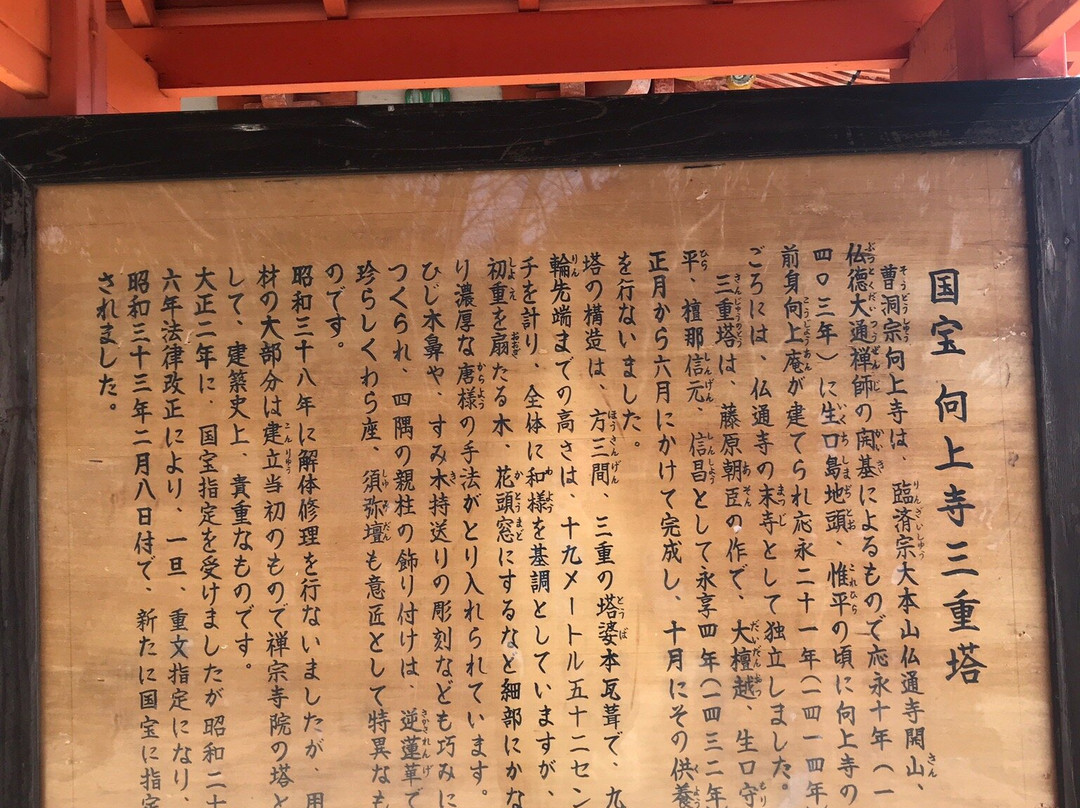 国宝 向上寺三重塔
曹洞宗向上寺は、臨済宗大本山仏通寺開山、
仏徳大通禅師の開基によるもので応永十年（一
四〇三年）に生口島地頭、惟平の頃に向上寺の
前身向上庵が建てられ応永二十一年（一四一四年
ごろには、仏通寺の末寺として独立しました。
三重塔は、藤原朝臣の作で、大檀越、生口守
平、檀那信元、信昌として永享四年（一四三二年
正月から六月にかけて完成し、十月にその供養
を行ないました。
塔の構造は、方三間、三重の塔婆本瓦葺で、九
輪先端までの高さは、十九メートル五十二セン
チを計り、全体に和様を基調としていますが、
初重を扇たる木、花頭窓にするなど細部にかな
り濃厚な唐様の手法がとり入れられています。
ひじ木鼻や、すみ木持送りの彫刻なども巧みに
つくられ、四隅の親柱の飾り付けは、逆蓮華で
珍らしくわら座、須弥壇も意匠として特異なも
のです。
昭和三十八年に解体修理を行ないましたが、用
材の大部分は建立当初のもので禅宗寺院の塔と
して、建築史上、貴重なものです。
大正二年に、国宝指定を受けましたが昭和二十
六年法律改正により、一旦、重文指定になり、
昭和三十三年二月八日付で、新たに国宝に指定
されました。